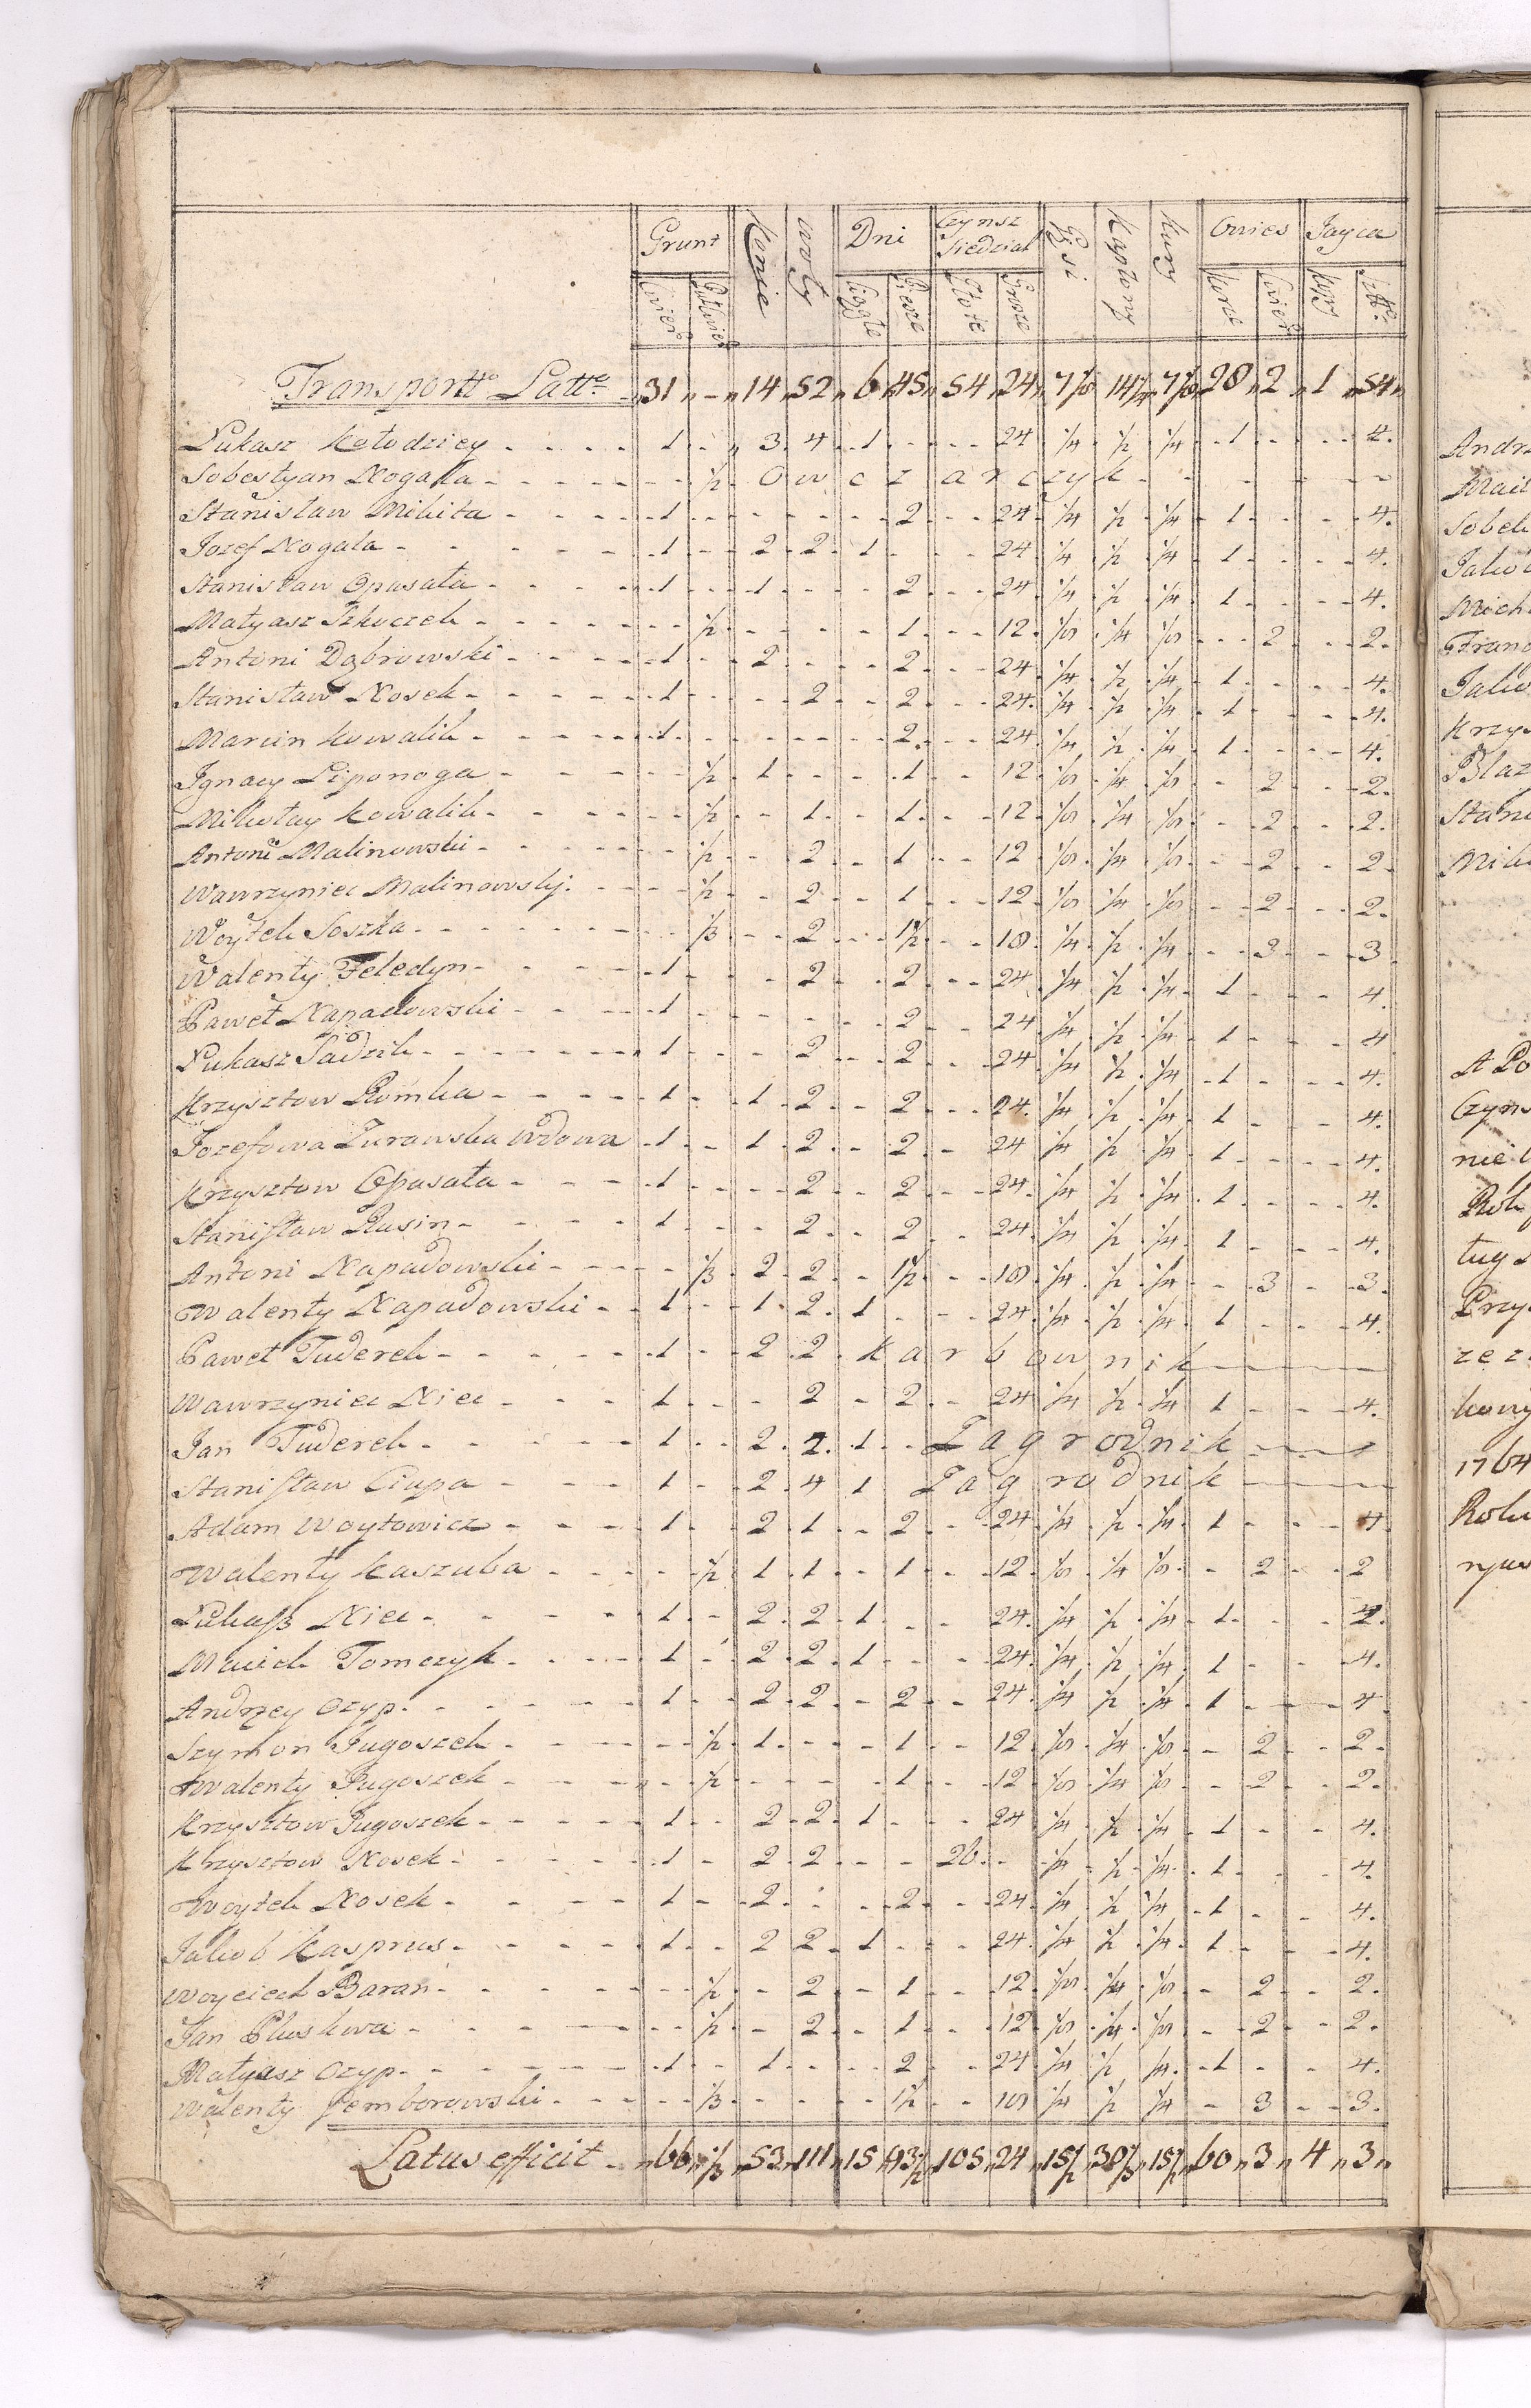 Grunt Konie woły Dni Czynsz Siedział Gęsi Kapłony Kury Owies Jayca
Cwier Półcwier Ciągłe Piesze Złote Grosze Korce Cwier Kopy Sztt
Transportt Latte 31 - 14 52 6 45 54 24 7 1/8 14 1/4 7 1/8 28 2 1 54
Łukasz Kołodziey 1 3 4 1 24 1/4 1/2 1/4 1 4
Sobestyan Nogala 1/2 Owczarczyk
Stanisław Mikita 1 2 24 1/4 1/2 1/4 1 4
Jozef Nogala 1 2 2 1 24 1/4 1/2 1/4 1 4
Stanisław Opasała 1 1 2 24 1/4 1/2 1/4 1 4
Matyasz Szkoczek 1/2 1 12 1/8 1/4 1/8 2 2
Antoni Dąbrowski 1 2 2 24 1/4 1/2 1/4 1 4
Stanisław Nosek 1 2 2 24 1/4 1/2 1/4 1 4
Marcin Kowalik 1 2 24 1/4 1/2 1/4 1 4
Ignacy Liponoga 1/2 1 1 12 1/8 1/4 1/8 2 2
Mikołay Kowalik 1/2 1 1 12 1/8 1/4 1/8 2 2
Antoni Malinowski 1/2 2 1 12 1/8 1/4 1/8 2 2
Wawrzyniec Malinowskj 1/2 2 1 12 1/8 1/4 1/8 2 2
Woytek Soszka 1/3 2 1 1/2 18 1/4 1/2 1/4 3 3
Walenty Feledyn 1 2 2 24 1/4 1/2 1/4 1 4
Paweł Napadowski 1 2 24 1/4 1/2 1/4 1 4
Łukasz Sadzik 1 2 2 24 1/4 1/2 1/4 1 4
Krzysztow Pomka 1 1 2 2 24 1/4 1/2 1/4 1 4
Jozefowa Zurawska Wdowa 1 1 2 2 24 1/4 1/2 1/4 1 4
Krzysztow Opasała 1 2 2 24 1/4 1/2 1/4 1 4
Stanisław Rusin 1 2 2 24 1/4 1/2 1/4 1 4
Antoni Napadowski 1/3 2 2 1 1/2 18 1/4 1/2 1/4 3 3
Walenty Napadowski 1 1 2 1 24 1/4 1/2 1/4 1 4
Paweł Tuderek 1 2 2 Karbownik
Wawrzyniec Niec 1 2 2 24 1/4 1/2 1/4 1 4
Jan Tuderek 1 2 2 1 Zagrodnik
Stanisław Ciupa 1 2 4 1 Zagrodnik
Adam Woytowicz 1 2 1 2 24 1/4 1/2 1/4 1 4
Walenty Kaszuba 1/2 1 1 1 12 1/8 1/4 1/8 2 2
Łukaβ Niec 1 2 2 1 24 1/4 1/2 1/4 1 4
Maciek Tomczyk 1 2 2 1 24 1/4 1/2 1/4 1 4
Andrzey Ozyp 1 2 2 2 24 1/4 1/2 1/4 1 4
Szymon Jugoszek 1/2 1 1 12 1/8 1/4 1/8 2 2
Walenty Jugoszek 1/2 1 12 1/8 1/4 1/8 2 2
Krzysztow Jugoszek 1 2 2 1 24 1/4 1/2 1/4 1 4
Krzysztow Nosek 1 2 2 26 1/4 1/2 1/4 1 4
Woytek Nosek 1 2 2 24 1/4 1/2 1/4 1 4
Jakob Kasprus 1 2 2 1 24 1/4 1/2 1/4 1 4
Woyciech Baran 1/2 2 1 12 1/8 1/4 1/8 2 2
Jan Pluskwa 1/2 2 1 12 1/8 1/4 1/8 2 2
Matyasz Ozyp 1 1 2 24 1/4 1/2 1/4 1 4
Walenty Jemborowski 1/3 1 1/2 18 1/4 1/2 1/4 3 3
Latus efficit 66 1/3 53 111 15 93 1/2 105 24 15 1/2 30 1/3 15 1/2 60 3 4 3